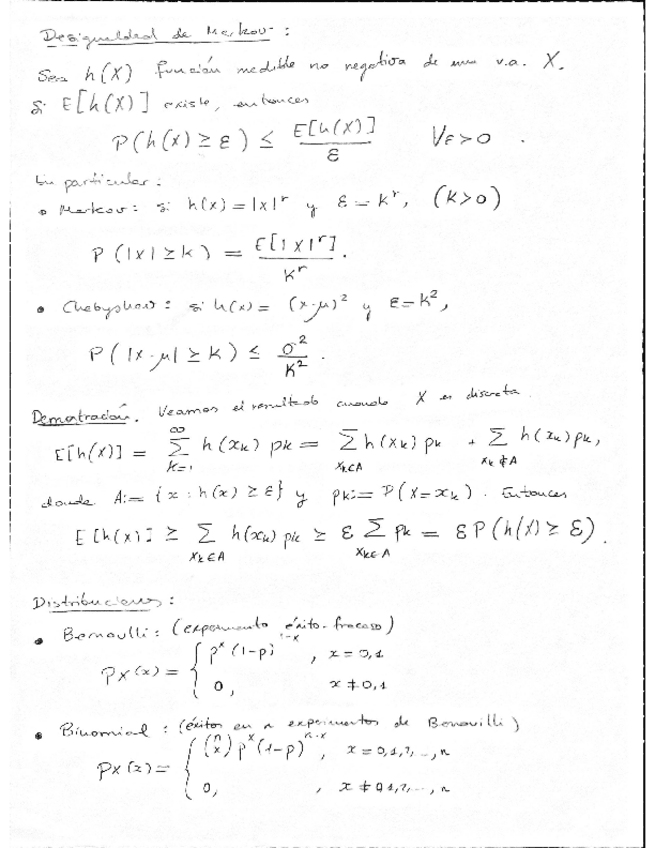 Desigualdad de Markov :
Sea h(X) función medible no negativa de una v.a. X.
Si E[h(X)] existe, entonces
P(h(X) ≥ ε) ≤ E[h(X)] / ε ∀ε>0 .
En particular :
• Markov : si h(x) = |x|^r y ε = k^r, (k>0)
P(|X| ≥ k) = E[|X|^r] / k^r .
• Chebyshov : si h(x) = (x-μ)^2 y ε=k^2,
P(|X-μ| ≥ k) ≤ σ^2 / k^2 .
Demostración. Veamos el resultado cuando X es discreta.
E[h(X)] = ∑_{k=1}^{∞} h(x_k) p_k = ∑_{x_k∈A} h(x_k) p_k + ∑_{x_k∉A} h(x_k) p_k,
donde A := {x : h(x) ≥ ε} y p_k := P(X=x_k). Entonces
E[h(X)] ≥ ∑_{x_k∈A} h(x_k) p_k ≥ ε ∑_{x_k∈A} p_k = ε P(h(X) ≥ ε).
Distribuciones :
• Bernoulli : (experimento éxito-fracaso)
p_X(x) = { p^x (1-p)^{1-x} , x = 0,1
0, x ≠ 0,1
• Binomial : (éxitos en n experimentos de Bernouilli)
p_X(x) = { (n x) p^x (1-p)^{n-x}, x = 0,1,2,...,n
0, , x ≠ 0,1,2,...,n